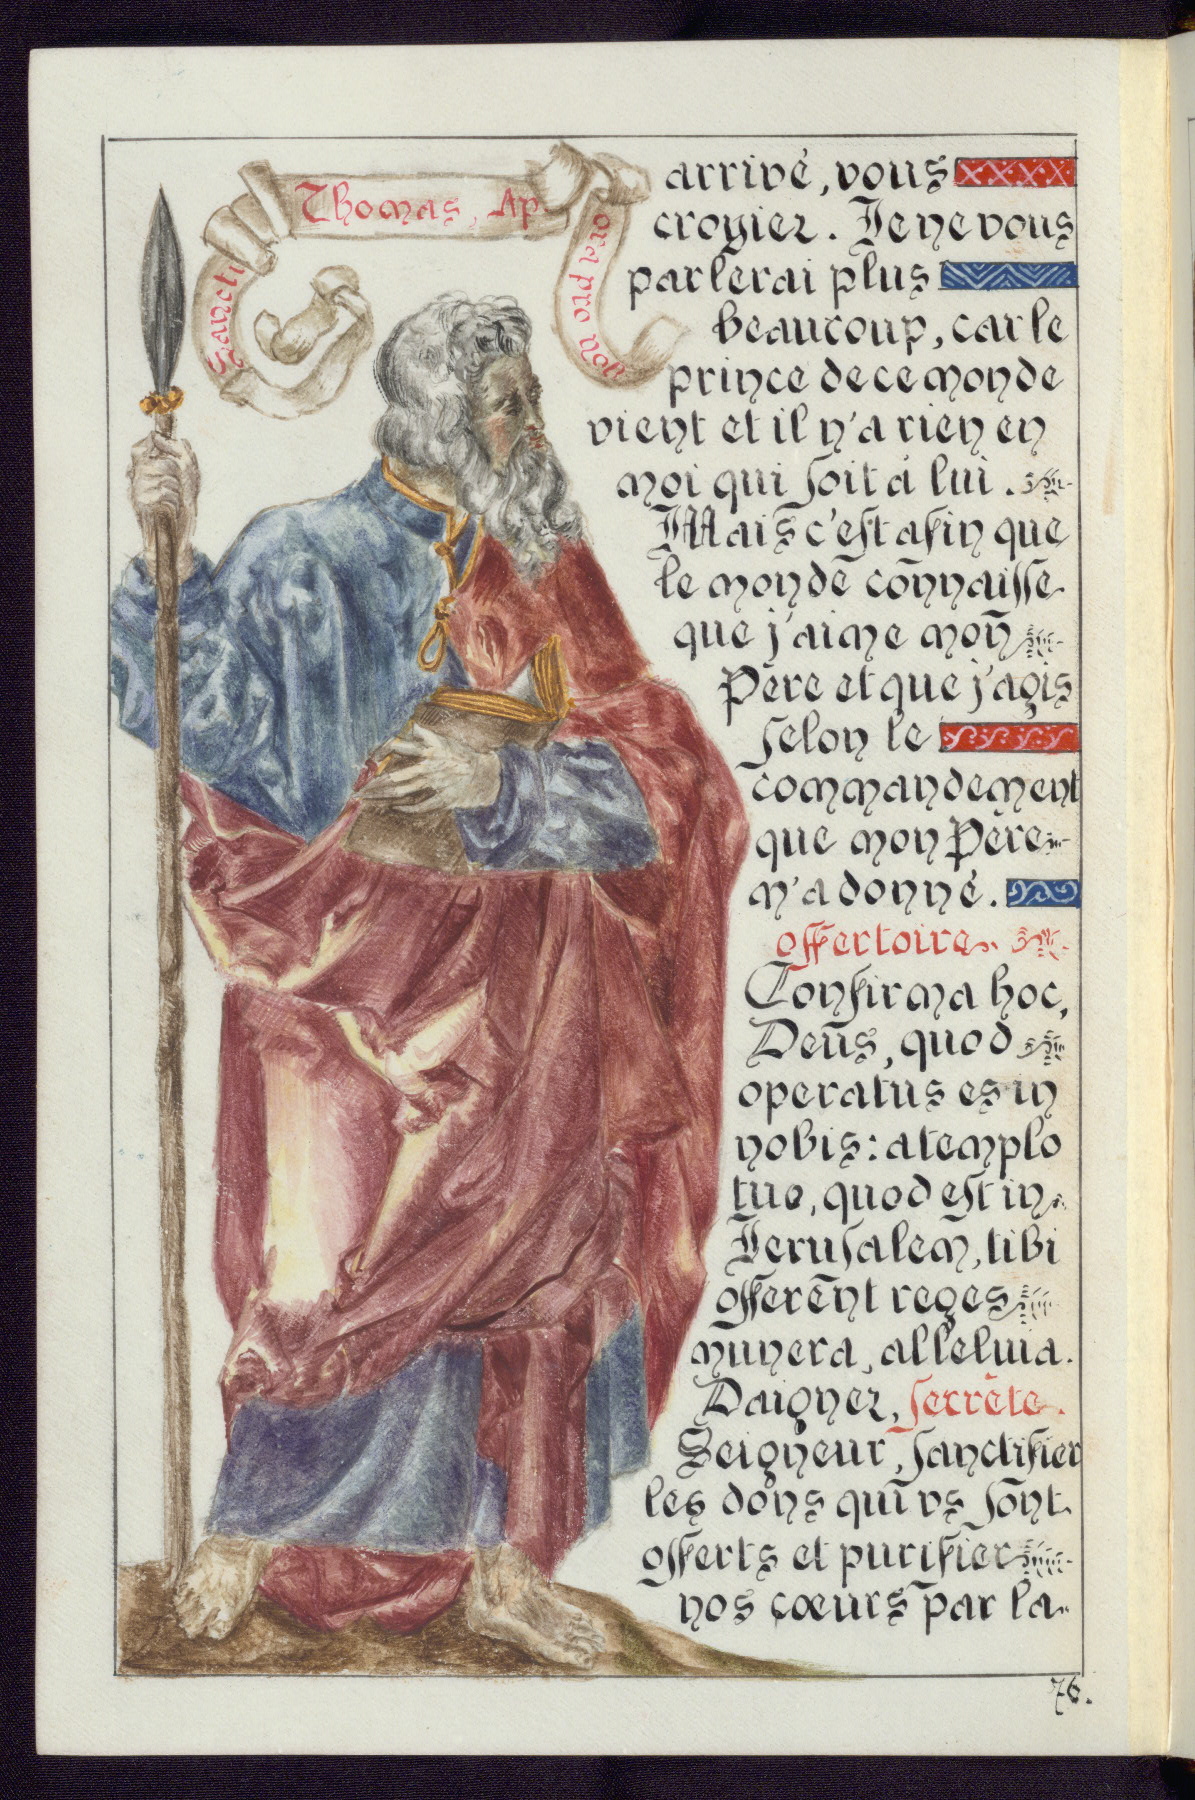 Sancti Thomas, Ap. ora pro nob
arrivé, vous
croyiez. Je ne vous
parlerai plus
beaucoup, car le
prince de ce monde
vient et il n'a rien en
moi qui soit à lui.
Mais c'est afin que
le monde connaisse
que j'aime mon
Père et que j'agis
selon le
commandement
que mon Père
m'a donné.
offertoire.
Confirma hoc,
Deus, quod
operatus es in
nobis: a templo
tuo, quod est in
Jerusalem, tibi
offerent reges
munera, alleluia.
Daignez, secrète.
Seigneur, sanctifier
les dons qui vs sont
offerts et purifier
nos cœurs par la
76.